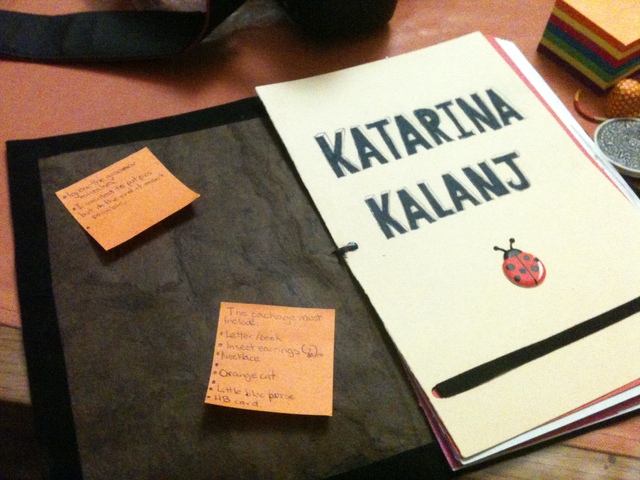 KATARINA
KALANJ
but do the rest of
possible.
The package must
include:
• Letter/book
• Insect earrings
• Necklace
• Orange cat
• Little blue purse
• HB card